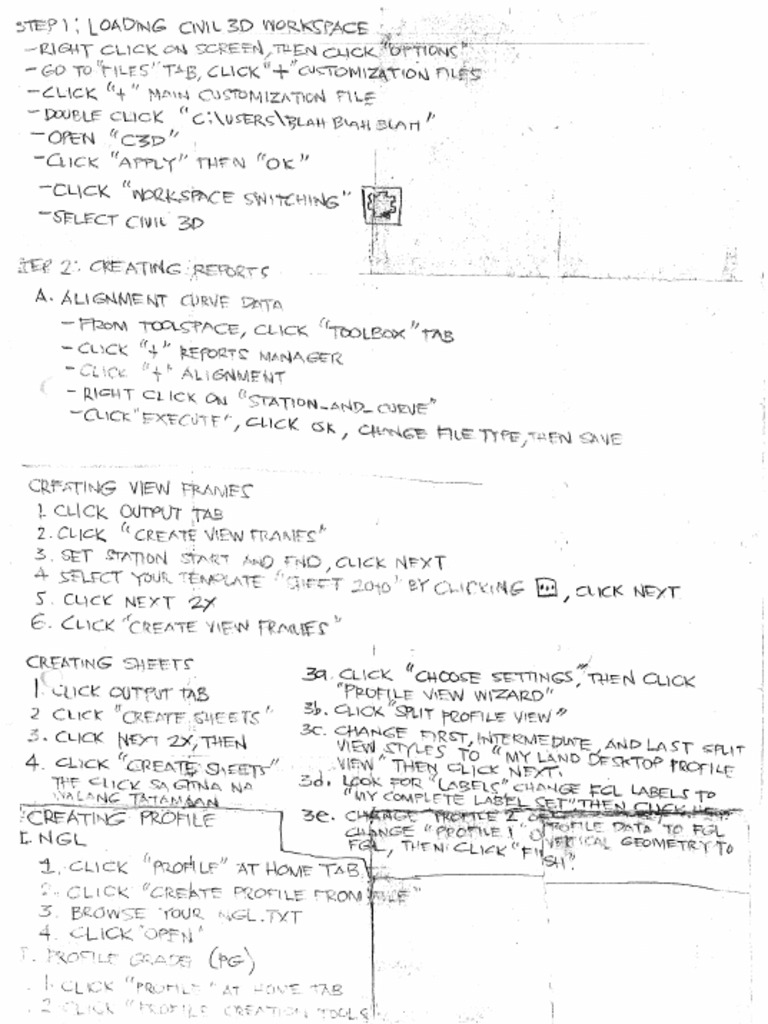 STEP 1: LOADING CIVIL 3D WORKSPACE
- RIGHT CLICK ON SCREEN, THEN CLICK "OPTIONS"
- GO TO "FILES" TAB, CLICK "+" CUSTOMIZATION FILES
- CLICK "+" MAIN CUSTOMIZATION FILE
- DOUBLE CLICK "C:\USERS\BLAH BLAH BLAH"
- OPEN "C3D"
- CLICK "APPLY" THEN "OK"
- CLICK "WORKSPACE SWITCHING"
- SELECT CIVIL 3D
STEP 2: CREATING REPORTS
A. ALIGNMENT CURVE DATA
- FROM TOOLSPACE, CLICK "TOOLBOX" TAB
- CLICK "+" REPORTS MANAGER
- CLICK "+" ALIGNMENT
- RIGHT CLICK ON "STATION_AND_CURVE"
- CLICK "EXECUTE", CLICK OK, CHANGE FILE TYPE, THEN SAVE
CREATING VIEW FRAMES
1. CLICK OUTPUT TAB
2. CLICK "CREATE VIEW FRAMES"
3. SET STATION START AND END, CLICK NEXT
4 SELECT YOUR TEMPLATE "SHEET 2040" BY CLICKING [...], CLICK NEXT
5. CLICK NEXT 2X
6. CLICK "CREATE VIEW FRAMES"
CREATING SHEETS
1. CLICK OUTPUT TAB
2 CLICK "CREATE SHEETS"
3. CLICK NEXT 2X, THEN
4. CLICK "CREATE SHEETS"
THE CLICK SA GITNA NA
WALANG TATAMAAN
3a. CLICK "CHOOSE SETTINGS," THEN CLICK
"PROFILE VIEW WIZARD"
3b. CLICK "SPLIT PROFILE VIEW"
3c. CHANGE FIRST, INTERMEDIATE, AND LAST SPLIT
VIEW STYLES TO "MY LAND DESKTOP PROFILE
VIEW" THEN CLICK NEXT.
3d. LOOK FOR "LABELS" CHANGE FGL LABELS TO
"MY COMPLETE LABEL SET" THEN CLICK
3e. CHANGE "PROFILE 2
CHANGE "PROFILE 1" PROFILE DATA TO FGL
VERTICAL GEOMETRY TO
FGL, THEN CLICK "FINISH".
CREATING PROFILE
I. NGL
1. CLICK "PROFILE" AT HOME TAB
2. CLICK "CREATE PROFILE FROM FILE"
3. BROWSE YOUR NGL.TXT
4. CLICK "OPEN"
PROFILE GRADE (PG)
1. CLICK "PROFILE" AT HOME TAB
2 CLICK "PROFILE CREATION TOOLS"